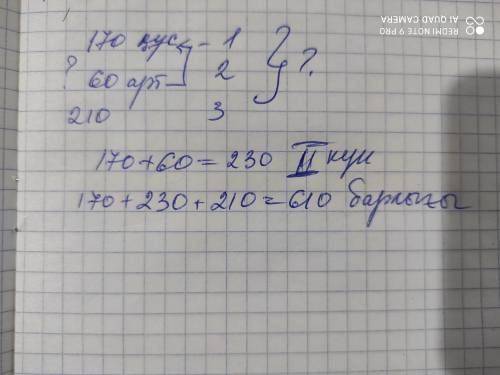 170 құс - 1
? 60 арт 2 ?
210 3
170+60=230 II күн
170+230+210=610 барлығы
REDMI NOTE 9 PRO
AI QUAD CAMERA